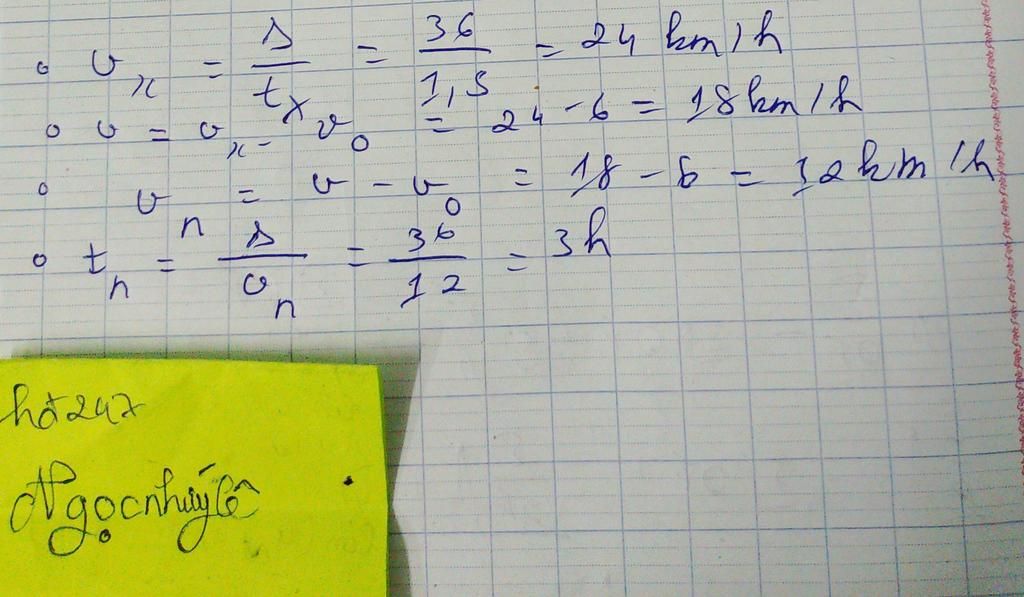 ∘ v_x = s/t_x = 36/1,5 = 24 km/h
∘ v = v_x - v_0 = 24 - 6 = 18 km/h
∘ v_n = v - v_0 = 18 - 6 = 12 km/h
∘ t_n = s/v_n = 36/12 = 3h
hđ247
Ngọcnhuýlê